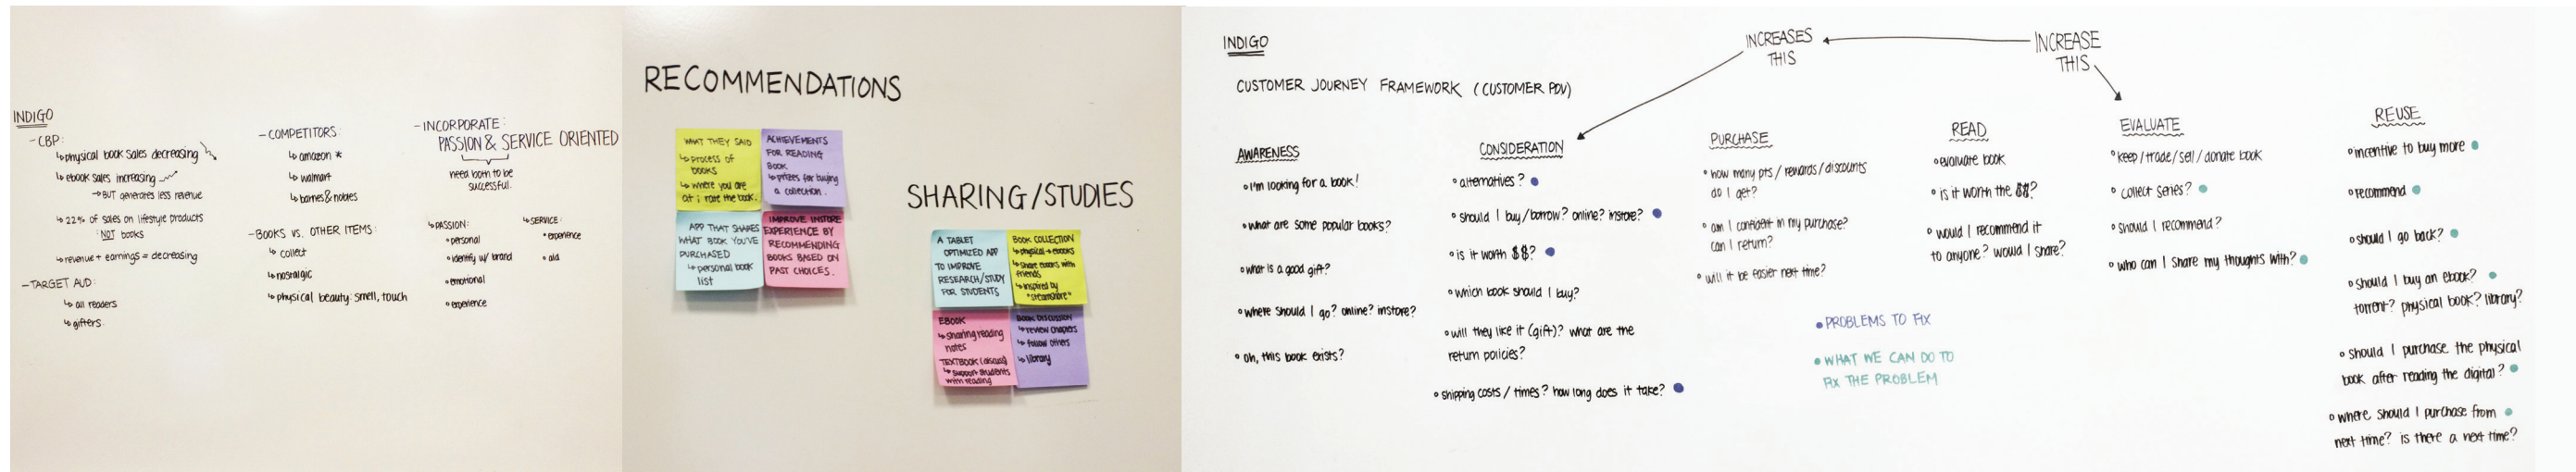 INDIGO
- CBP:
↳ physical book sales decreasing
↳ ebook sales increasing
→ BUT generates less revenue
↳ 22% of sales on lifestyle products
NOT books
↳ revenue + earnings = decreasing
- TARGET AUD:
↳ all readers
↳ gifters
- COMPETITORS:
↳ amazon *
↳ walmart
↳ barnes & nobles
- BOOKS VS. OTHER ITEMS:
↳ collect
↳ nostalgic
↳ physical beauty: smell, touch
- INCORPORATE:
PASSION & SERVICE ORIENTED
need both to be
successful.
↳ PASSION:
• personal
• identify w/ brand
• emotional
• experience
↳ SERVICE:
• experience
• aid
RECOMMENDATIONS
WHAT THEY SAID
↳ process of
books
↳ where you are
at; rate the book.
ACHIEVEMENTS
FOR READING
BOOK
↳ prizes for buying
a collection.
APP THAT SHARES
WHAT BOOK YOU'VE
PURCHASED
↳ personal book
list
IMPROVE INSTORE
EXPERIENCE BY
RECOMMENDING
BOOKS BASED ON
PAST CHOICES.
SHARING/STUDIES
A TABLET
OPTIMIZED APP
TO IMPROVE
RESEARCH/STUDY
FOR STUDENTS
BOOK COLLECTION
↳ physical → ebooks
↳ share ebooks with
friends
↳ inspired by
EBOOK
↳ sharing reading
notes
TEXTBOOK (discuss)
↳ support students
with reading
BOOK DISCUSSION
↳ review chapters
↳ follow others
↳ library
INDIGO
CUSTOMER JOURNEY FRAMEWORK (CUSTOMER POV)
INCREASES
THIS
INCREASE
THIS
AWARENESS
• I'm looking for a book!
• what are some popular books?
• what is a good gift?
• where should I go? online? instore?
• oh, this book exists?
CONSIDERATION
• alternatives?
• should I buy/borrow? online? instore?
• is it worth $$?
• which book should I buy?
• will they like it (gift)? what are the
return policies?
• shipping costs / times? how long does it take?
PURCHASE
• how many pts / rewards / discounts
do I get?
• am I confident in my purchase?
can I return?
• will it be easier next time?
READ
• evaluate book
• is it worth the $$?
• would I recommend it
to anyone? would I share?
• PROBLEMS TO FIX
• WHAT WE CAN DO TO
FIX THE PROBLEM
EVALUATE
• keep / trade / sell / donate book
• collect series?
• should I recommend?
• who can I share my thoughts with?
REUSE
• incentive to buy more
• recommend
• should I go back?
• should I buy an ebook?
torrent? physical book? library?
• should I purchase the physical
book after reading the digital?
• where should I purchase from
next time? is there a next time?